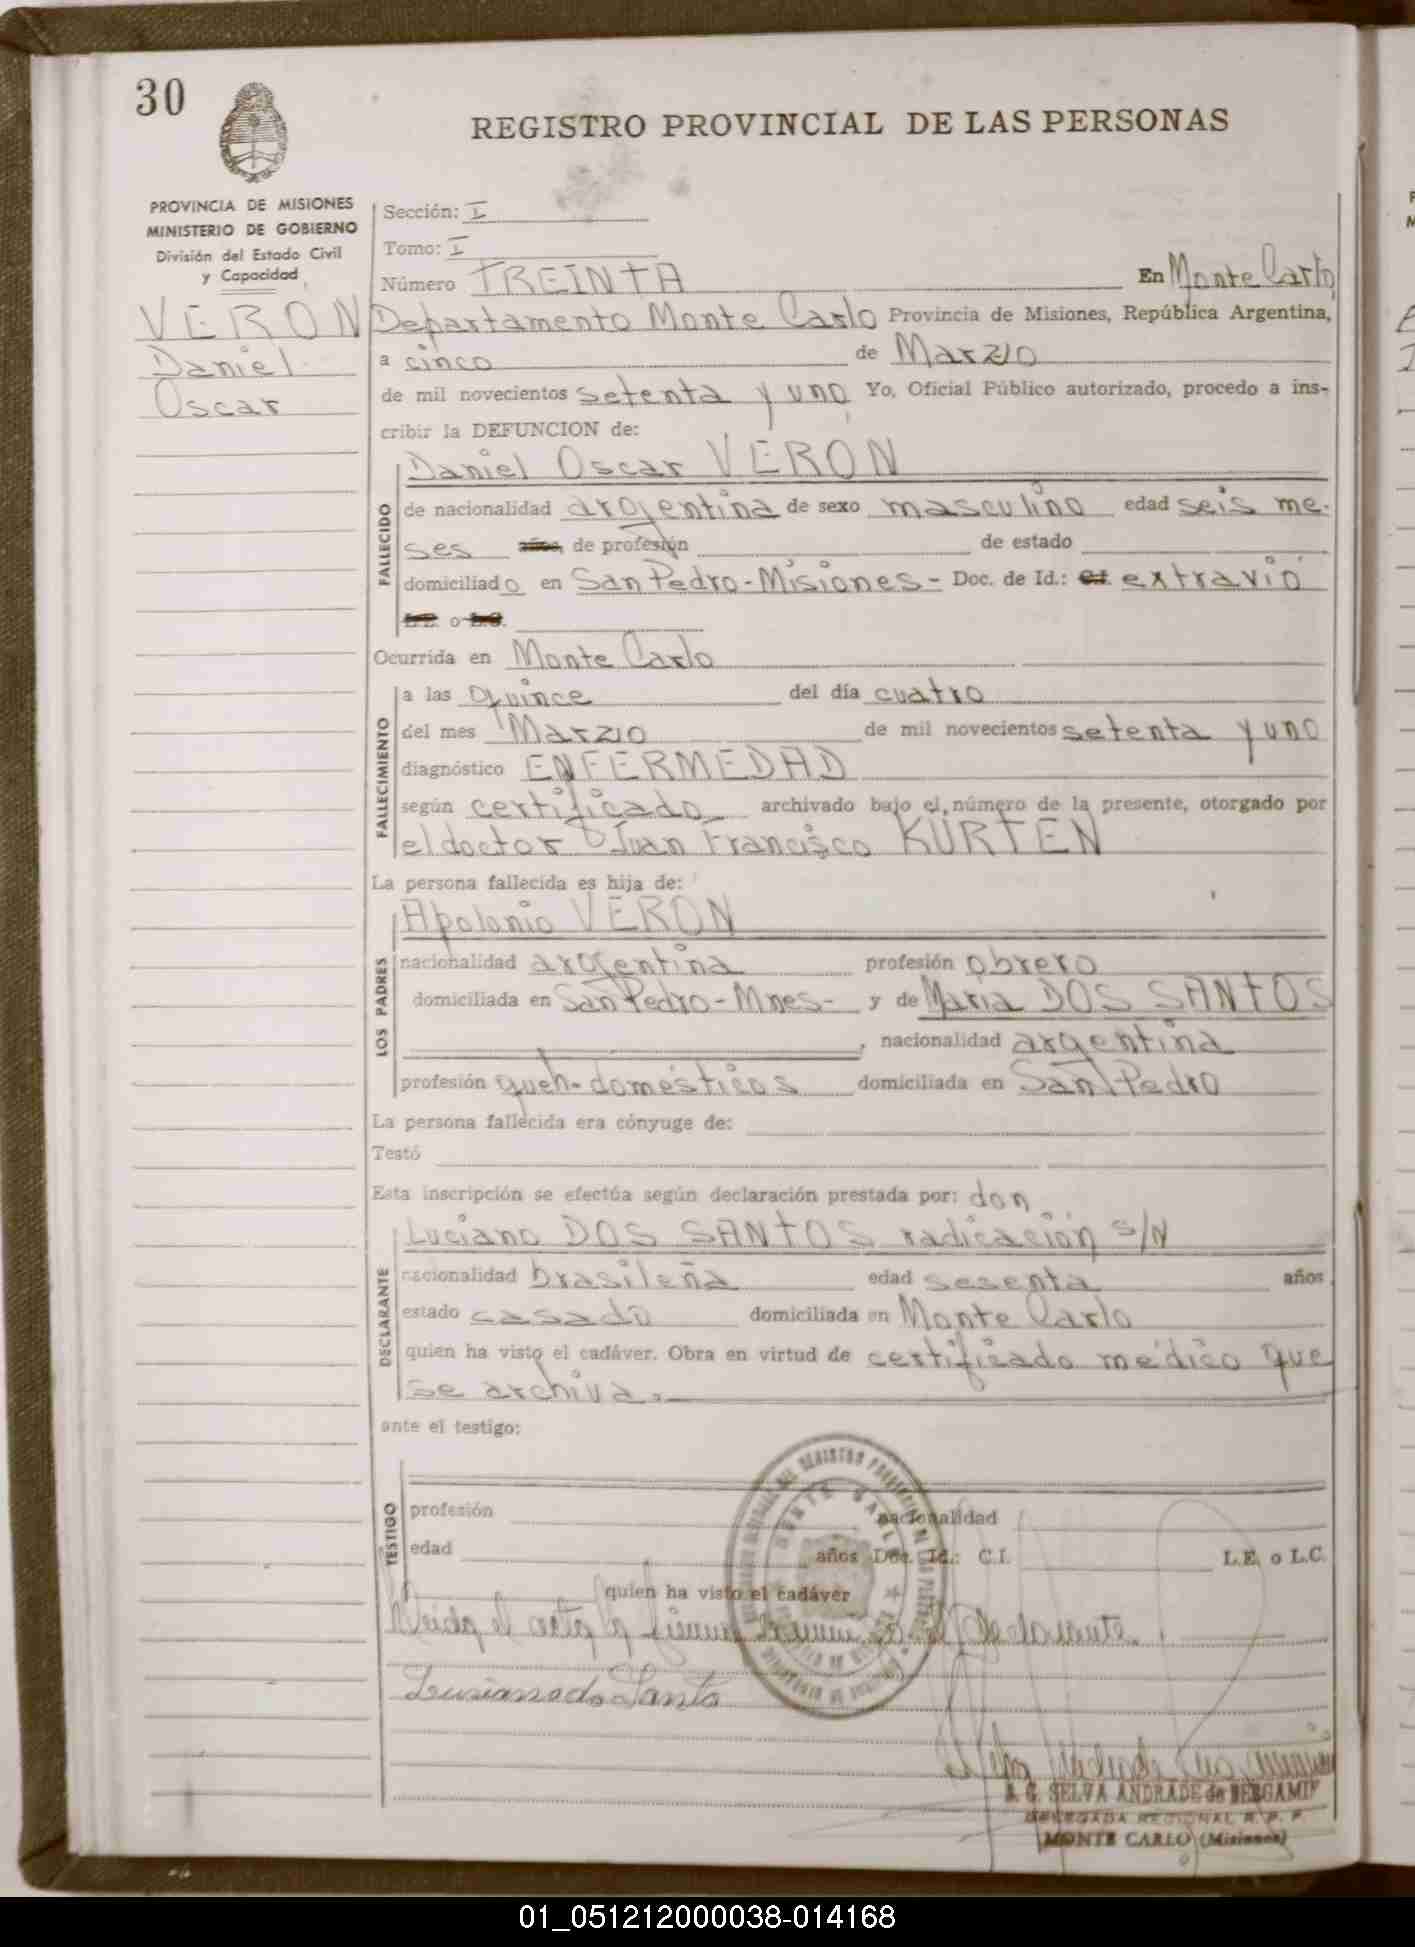 30
REGISTRO PROVINCIAL DE LAS PERSONAS
PROVINCIA DE MISIONES
MINISTERIO DE GOBIERNO
División del Estado Civil
y Capacidad
VERON
Daniel
Oscar
Sección: I
Tomo: I
Número TREINTA En Monte Carlo
Departamento Monte Carlo Provincia de Misiones, República Argentina,
a cinco de Marzo
de mil novecientos setenta y uno Yo, Oficial Público autorizado, procedo a ins-
cribir la DEFUNCION de:
FALLECIDO
Daniel Oscar VERON
de nacionalidad argentina de sexo masculino edad seis me-
ses años, de profesión de estado
domiciliado en San Pedro-Misiones- Doc. de Id.: extravió
o
Ocurrida en Monte Carlo
FALLECIMIENTO
a las quince del día cuatro
del mes Marzo de mil novecientos setenta y uno
diagnóstico ENFERMEDAD
según certificado archivado bajo el número de la presente, otorgado por
el doctor Juan Francisco KÜRTEN
La persona fallecida es hija de:
LOS PADRES
Apolonio VERON
nacionalidad argentina profesión obrero
domiciliada en San Pedro-Mnes- y de Maria DOS SANTOS
, nacionalidad argentina
profesión queh-domésticos domiciliada en San Pedro
La persona fallecida era cónyuge de:
Testó
Esta inscripción se efectúa según declaración prestada por: don
DECLARANTE
Luciano DOS SANTOS radicación s/N
nacionalidad brasileña edad sesenta años
estado casado domiciliada en Monte Carlo
quien ha visto el cadáver. Obra en virtud de certificado médico que
se archiva.-
ante el testigo:
TESTIGO
profesión nacionalidad
edad años Doc. Id.: C.I. L.E. o L.C.
quien ha visto el cadáver
Leida el acta la firma el declarante.
Lusiano do Santo
S. G. SELVA ANDRADE de BERGAMI
DELEGADA REGIONAL R. P. P.
MONTE CARLO (Misiones)
01_051212000038-014168